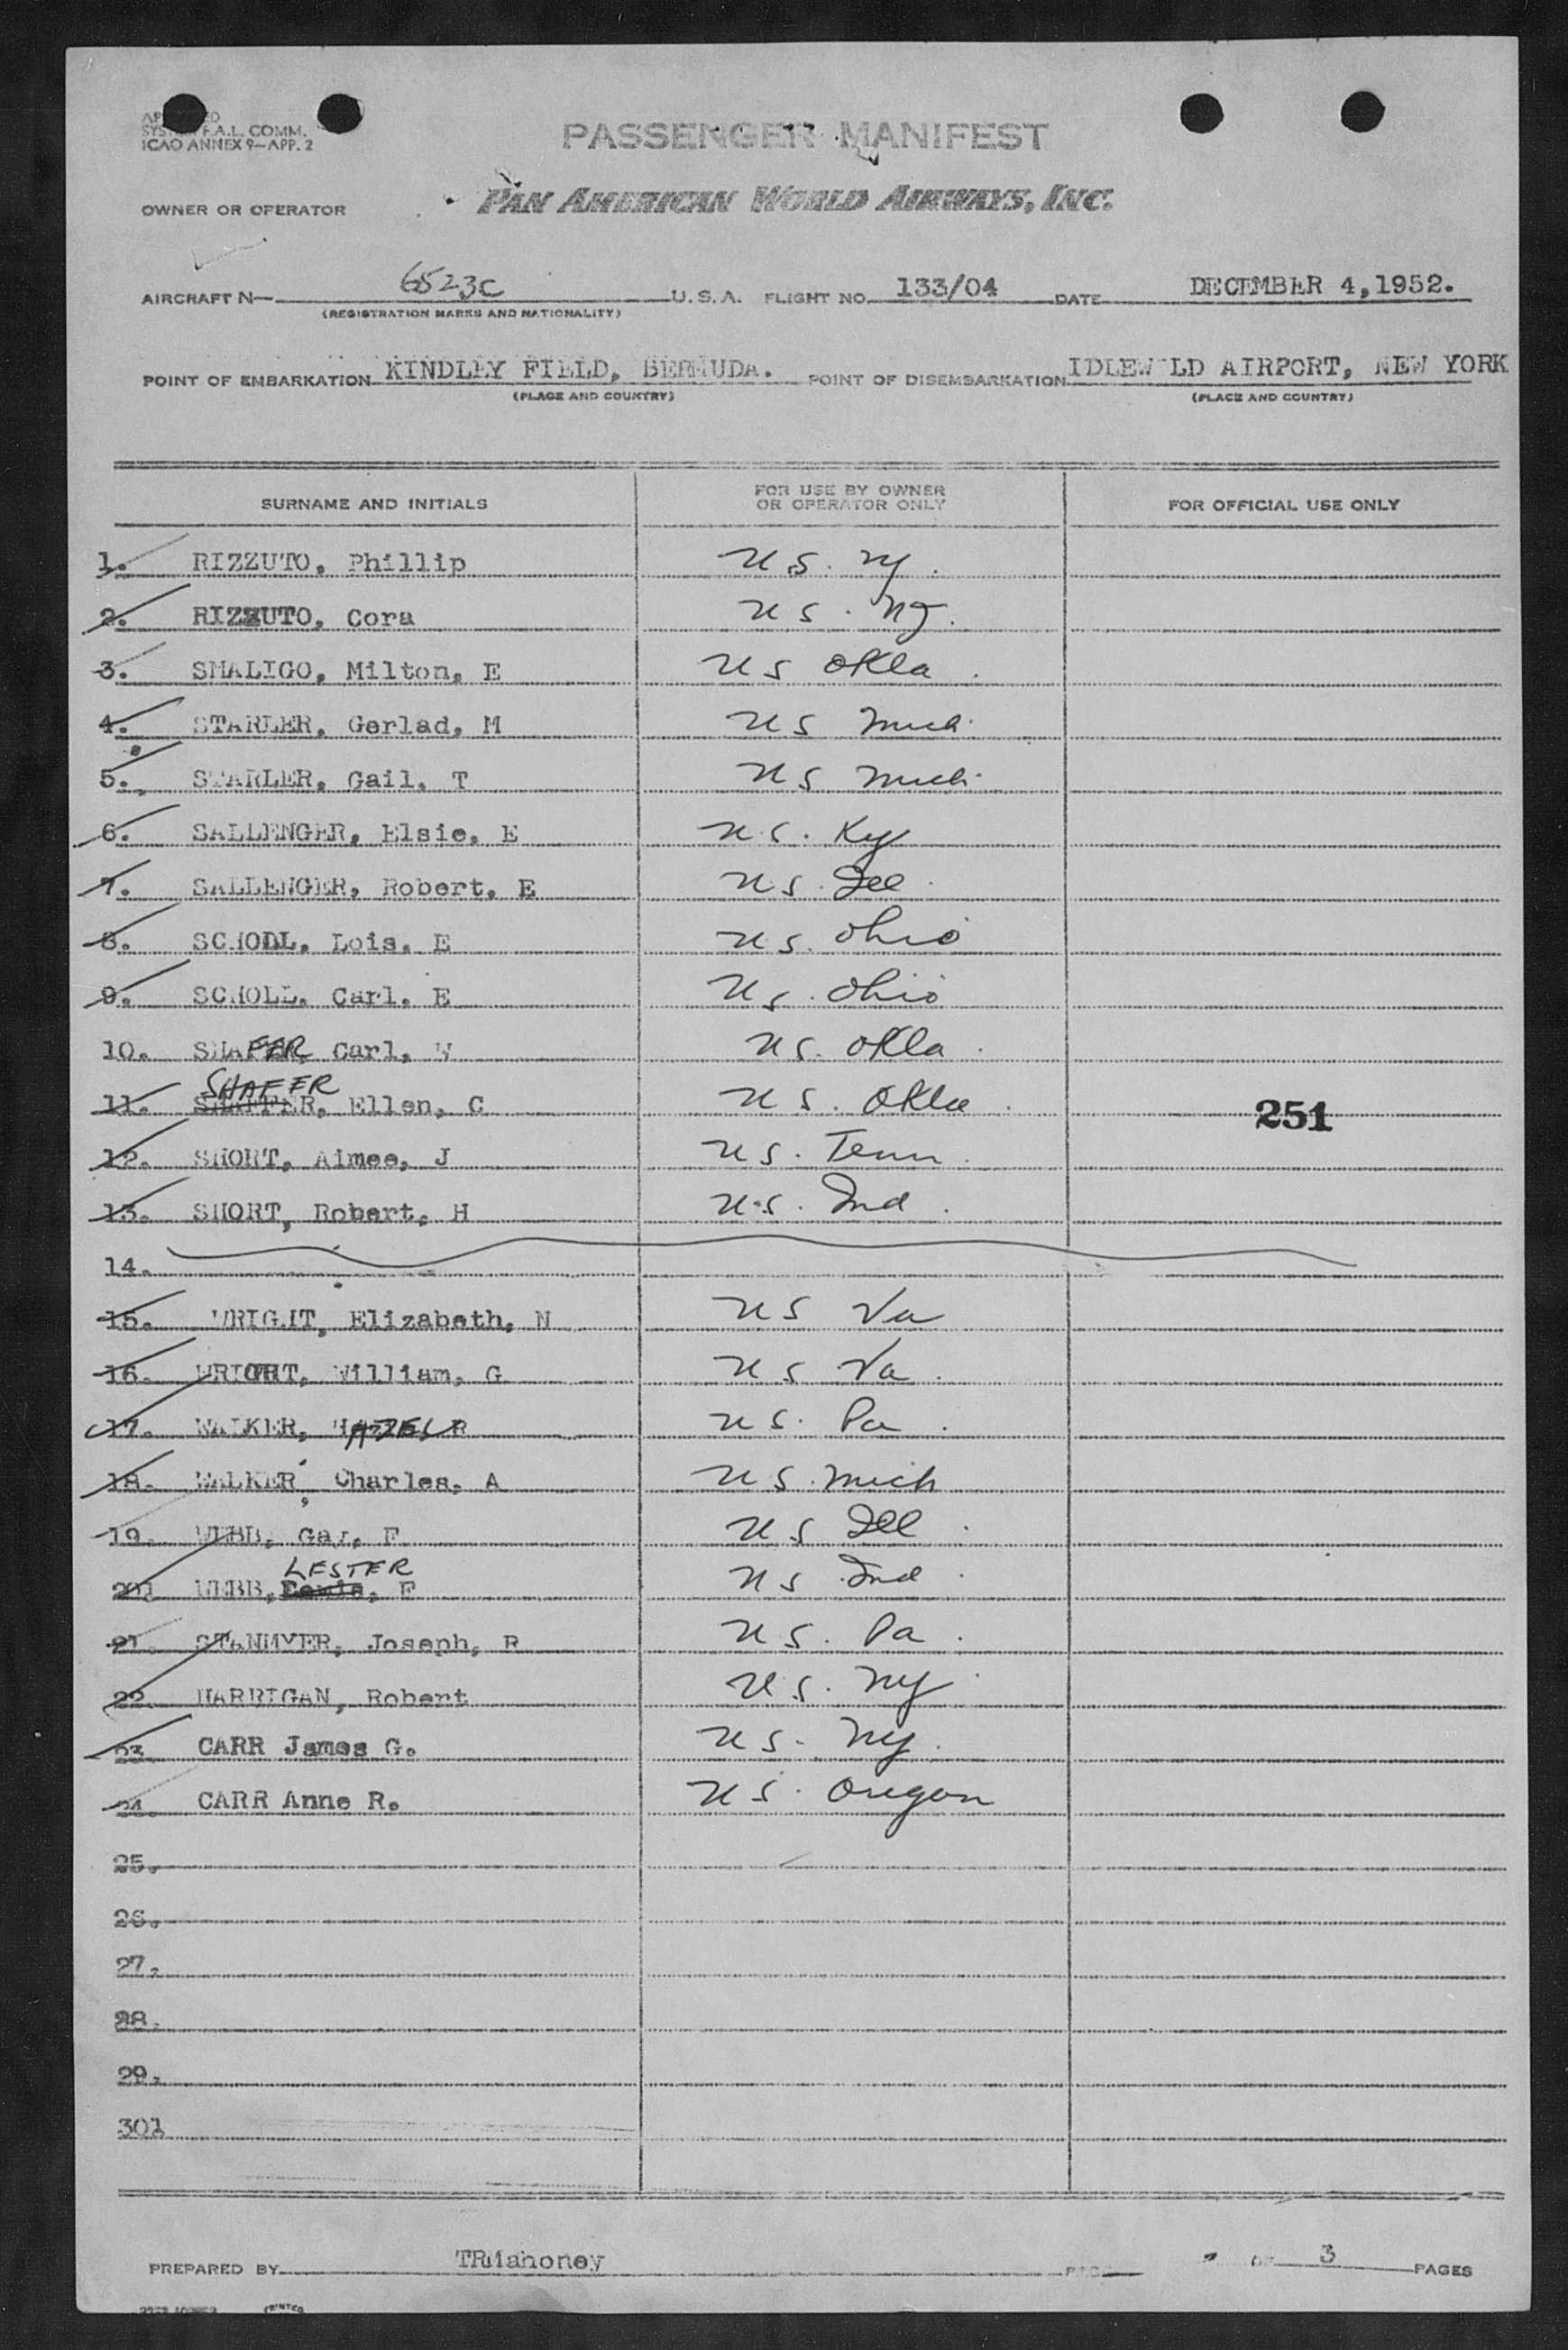 SYST F.A.L. COMM.
ICAO ANNEX 9—APP. 2
PASSENGER MANIFEST
OWNER OR OPERATOR PAN AMERICAN WORLD AIRWAYS, INC.
AIRCRAFT N— 6523C U.S.A. FLIGHT NO. 133/04 DATE DECEMBER 4,1952.
(REGISTRATION MARKS AND NATIONALITY)
POINT OF EMBARKATION KINDLEY FIELD, BERMUDA. POINT OF DISEMBARKATION IDLEW LD AIRPORT, NEW YORK
(PLACE AND COUNTRY) (PLACE AND COUNTRY)
SURNAME AND INITIALS FOR USE BY OWNER OR OPERATOR ONLY FOR OFFICIAL USE ONLY
1. RIZZUTO, Phillip U.S. NY.
2. RIZZUTO, Cora US. NJ.
3. SMALIGO, Milton, E US OKla.
4. STARLER, Gerlad, M US Mich.
5. STARLER, Gail, T US Mich.
6. SALLENGER, Elsie, E U.S. Ky
7. SALLENGER, Robert, E US. Ill.
8. SCHODL, Lois, E US. Ohio
9. SCHOLL, Carl, E US. Ohio
10. SHAFER, Carl, W US. OKla.
SHAFER
11. SHAFFER, Ellen, C US. OKla. 251
12. SHORT, Aimee, J US. Tenn.
13. SHORT, Robert, H U.S. Ind.
14.
15. WRIGHT, Elizabeth, N US Va
16. WRIGHT, William, G US Va.
17. WALKER, HAZEL, R US. Pa.
18. WALKER, Charles, A US. Mich
19. WEBB, Gay, F US Ill.
LESTER
20. WEBB, F US Ind.
21. STANMYER, Joseph, R US. Pa.
22. HARRIGAN, Robert U.S. NY.
23 CARR James G. US. NY.
24. CARR Anne R. US. Oregon
25.
26.
27.
28.
29.
301
PREPARED BY TRMahoney OF 3 PAGES
PRINTED